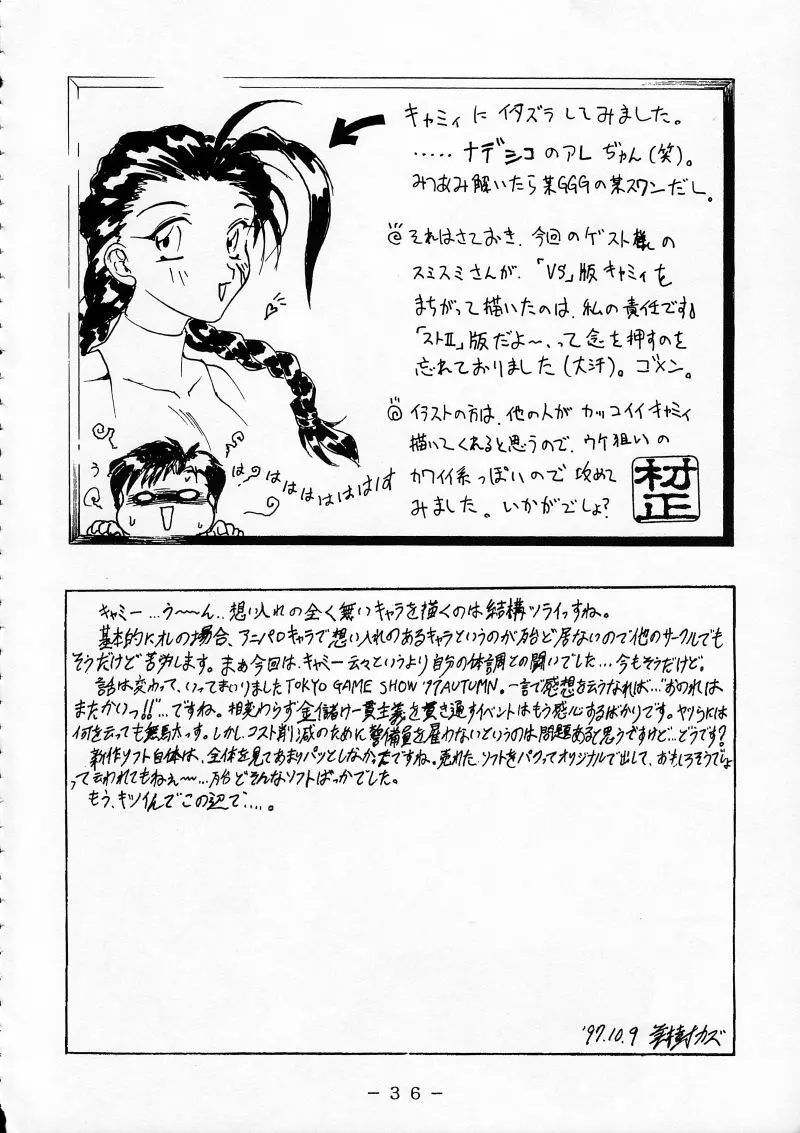 キャミィに イタズラ してみました。
‥‥‥ナデシコのアレぢゃん(笑)。
みつあみ解いたら某GGGの某スワンだし。
それはさておき、今回のゲスト様の
スミスミさんが、「VS」版キャミィを
まちがって描いたのは、私の責任です。
「ストII」版だよ〜、って念を押すのを
忘れておりました(大汗)。ゴメン。
イラストの方は、他の人が カッコイイ キャミィ
描いてくれると思うので、ウケ狙いの
カワイイ系っぽいので 攻めて
みました。いかがでしょ?
村正
う
はっはははははははす
キャミー…う〜〜ん‥想い入れの全く無いキャラを描くのは結構ツライっすね。
基本的にオレの場合、アニパロのキャラで想い入れのあるキャラというのが殆ど居ないので他のサークルでも
そうだけど苦労します。まぁ今回は、キャミー云々というより自分の体調との闘いでした…今もそうだけど。
話は変わって、いってまいりましたTOKYO GAME SHOW '97 AUTUMN。一言で感想を云うなれば…"おのれは
またかいっ!!"…ですね。相変わらず金儲け一貫主義を貫き通すイベントはもう感心するばかりです。ヤツらには
何を云っても無駄っす。しかし、コスト削減のために警備員を雇わないというのは問題あると思うですけど…どうです?
新作ソフト自体は、全体を見てあまりパッとしなかったですね。売れたソフトをパクってオリジナルで出して、おもしろそうでしょ
って云われてもねぇ〜〜…殆どそんなソフトばっかでした。
もう、キツイんでこの辺で‥‥。
'97.10.9 カズ
- 36 -